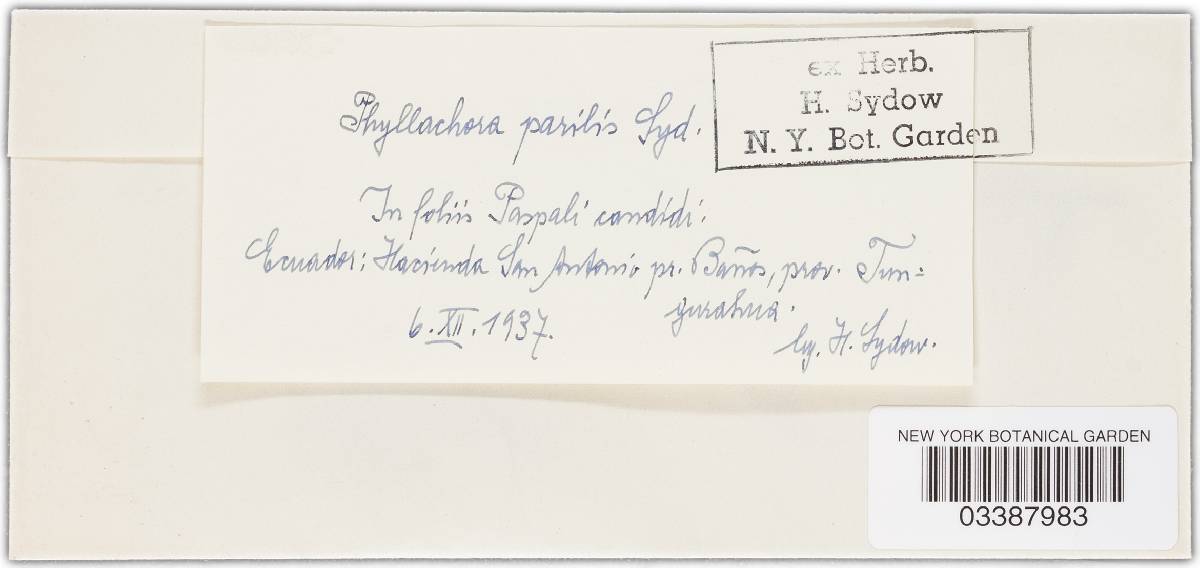 ex Herb.
H. Sydow
N. Y. Bot. Garden
Phyllachora parilis Syd.
In foliis Paspali candidi.
Ecuador: Hacienda San Antonio pr. Baños, prov. Tun=
gurahua.
6.XII.1937.
leg. H. Sydow.
NEW YORK BOTANICAL GARDEN
03387983